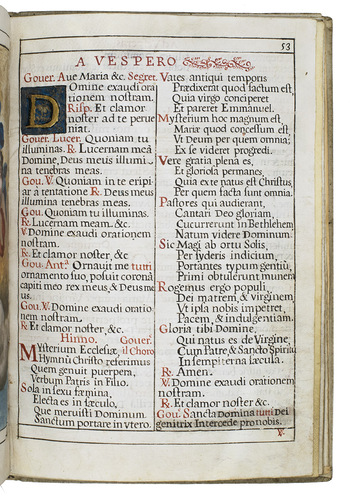 53
A VESPERO
Gouer. Aue Maria &c. Segret.
Domine exaudi ora
tionem nostram.
Risp. Et clamor
noster ad te perue
niat.
Gouer. Lucer. Quoniam tu
illuminas. R. Lucernam meā
Domine, Deus meus illumi-
na tenebras meas.
Gou. V. Quoniam in te eripi-
ar à tentatione R. Deus meus
illumina tenebras meas.
Gou. Quoniam tu illuminas.
R. Lucernam meam. &c.
V. Domine exaudi orationem
nostram.
R. Et clamor noster, &c
Gou. Antª. Ornauit me tutti
ornamento suo, posuit coronā
capiti meo rex meus, & Deus me
us.
Gou. V. Domine exaudi oratio
nem nostram.
R. Et clamor noster, &c.
Hinno. Gouer.
Mysterium Ecclesiæ, il Choro
Hymnū Christo referimus
Quem genuit puerpera,
Verbum Patris in Filio.
Sola in sexu fæmina,
Electa es in sæculo,
Que meruisti Dominum.
Sanctum portare in vtero.
Vates antiqui temporis
Prædixerat quod factum est,
Quia virgo conciperet
Et pareret Emmanuel.
Mysterium hoc magnum est,
Mariæ quod concessum est,
Vt Deum per quem omnia,
Ex se videret progredi.
Vere gratia plena es,
Et gloriosa permanes,
Quia ex te natus est Christus,
Per quem facta sunt omnia.
Pastores qui audierant,
Cantari Deo gloriam,
Cucurrerunt in Bethlehem,
Natum videre Dominum.
Sic Magi ab ortu Solis,
Per syderis indicium,
Portantes typum gentiū,
Primi obtulerunt munera
Rogemus ergo populi,
Dei matrem & virginem,
Vt ipsa nobis impetret,
Pacem, & indulgentiam.
Gloria tibi Domine,
Qui natus es de Virgine,
Cum Patre, & Sancto Spiritu
In sempiterna sæcula.
R. Amen.
V. Domine exaudi orationem
nostram.
R. Et clamor noster &c
Gou. Sancta Domina tutti Dei
genitrix Intercede pro nobis.
V.